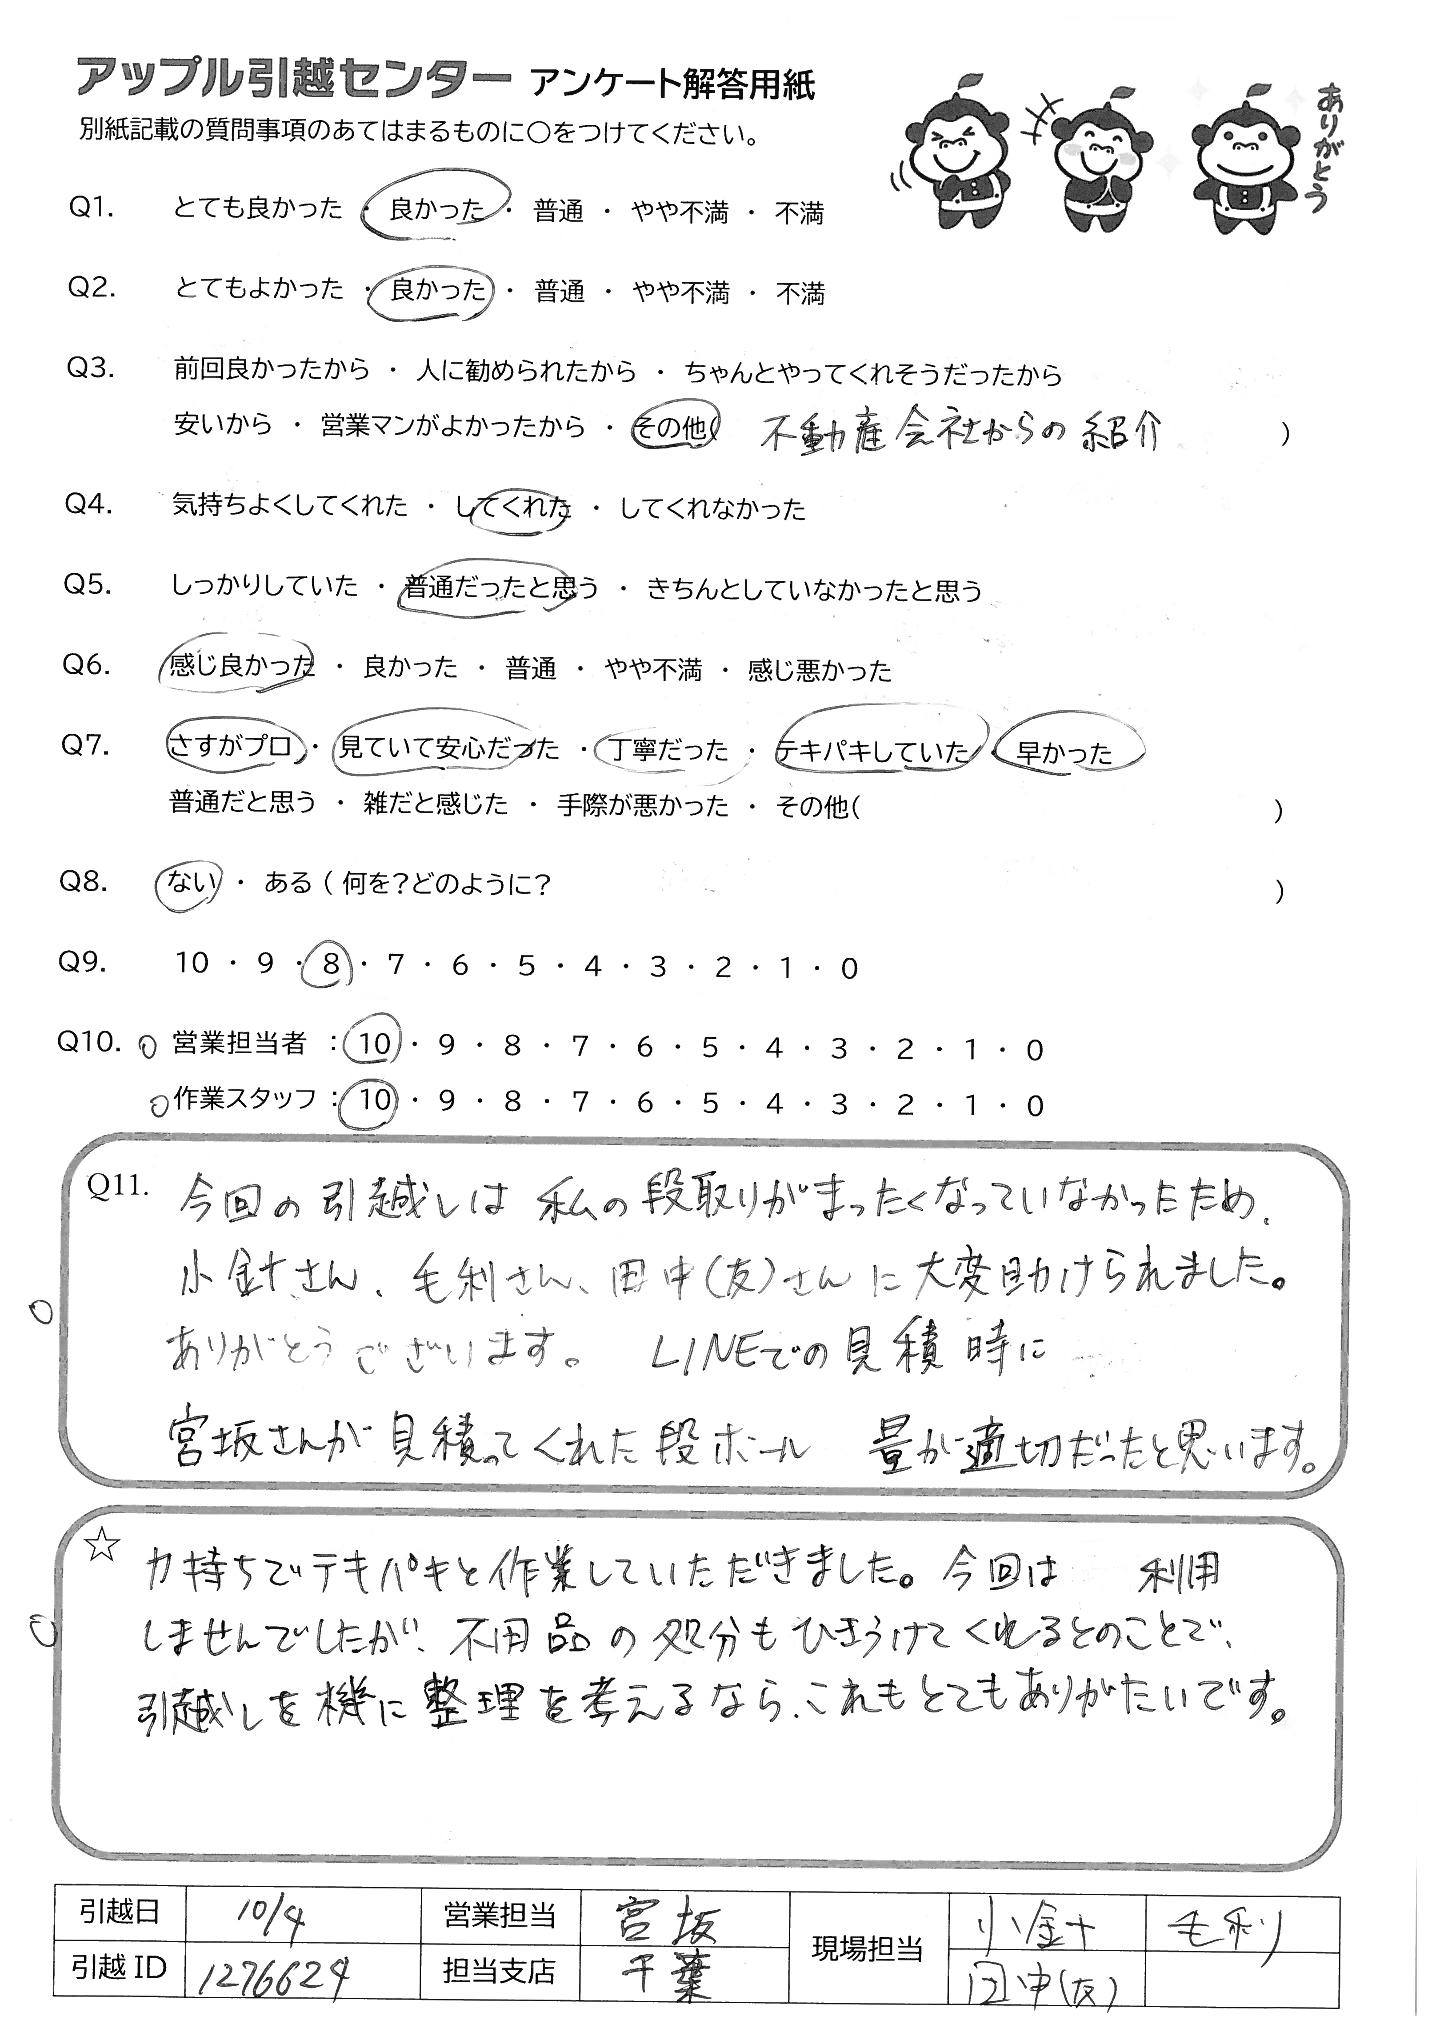 アップル引越センター アンケート解答用紙
別紙記載の質問事項のあてはまるものに〇をつけてください。
ありがとう
Q1. とても良かった ・ 良かった ・ 普通 ・ やや不満 ・ 不満
Q2. とてもよかった ・ 良かった ・ 普通 ・ やや不満 ・ 不満
Q3. 前回良かったから ・ 人に勧められたから ・ ちゃんとやってくれそうだったから
安いから ・ 営業マンがよかったから ・ その他( 不動産会社からの紹介 )
Q4. 気持ちよくしてくれた ・ してくれた ・ してくれなかった
Q5. しっかりしていた ・ 普通だったと思う ・ きちんとしていなかったと思う
Q6. 感じ良かった ・ 良かった ・ 普通 ・ やや不満 ・ 感じ悪かった
Q7. さすがプロ ・ 見ていて安心だった ・ 丁寧だった ・ テキパキしていた ・ 早かった
普通だと思う ・ 雑だと感じた ・ 手際が悪かった ・ その他( )
Q8. ない ・ ある ( 何を?どのように? )
Q9. 10 ・ 9 ・ 8 ・ 7 ・ 6 ・ 5 ・ 4 ・ 3 ・ 2 ・ 1 ・ 0
Q10. 営業担当者 : 10 ・ 9 ・ 8 ・ 7 ・ 6 ・ 5 ・ 4 ・ 3 ・ 2 ・ 1 ・ 0
作業スタッフ : 10 ・ 9 ・ 8 ・ 7 ・ 6 ・ 5 ・ 4 ・ 3 ・ 2 ・ 1 ・ 0
Q11. 今回の引越しは私の段取りがまったくなっていなかったため、
小針さん、毛利さん、田中(友)さんに大変助けられました。
ありがとうございます。 LINEでの見積時に
宮坂さんが見積ってくれた段ボール 量が適切だったと思います。
☆ 力持ちでテキパキと作業していただきました。今回は 利用
しませんでしたが、不用品の処分もひきうけてくれるとのことで、
引越しを機に整理を考えるなら、これもとてもありがたいです。
引越日 10/4 営業担当 宮坂 現場担当 小針 毛利
引越ID 1276624 担当支店 千葉 田中(友)